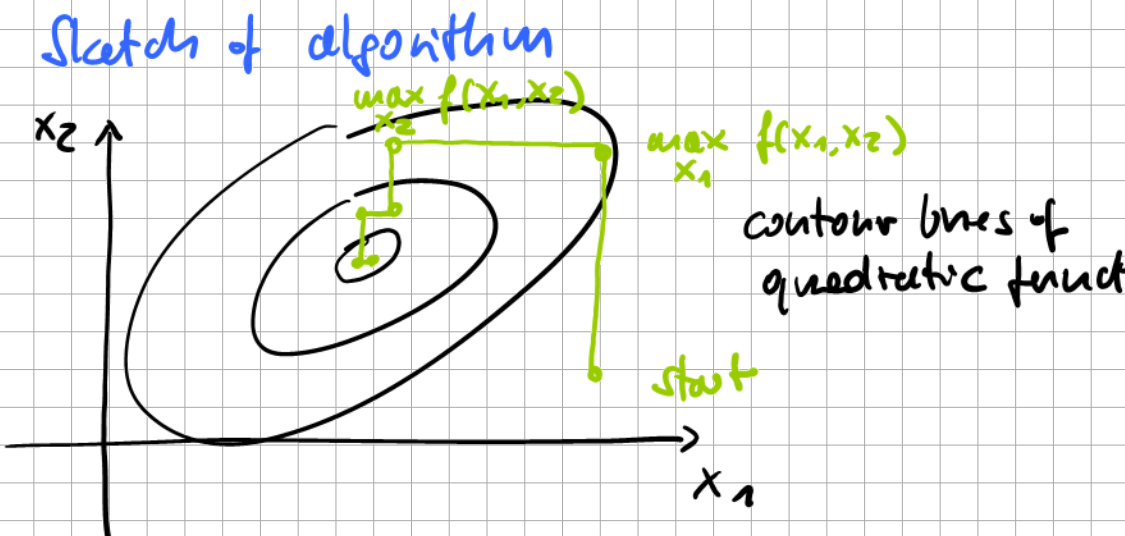 Sketch of algorithm
max f(x1, x2)
x2
x2
max f(x1, x2)
x1
contour lines of
quadratic funct
start
x1